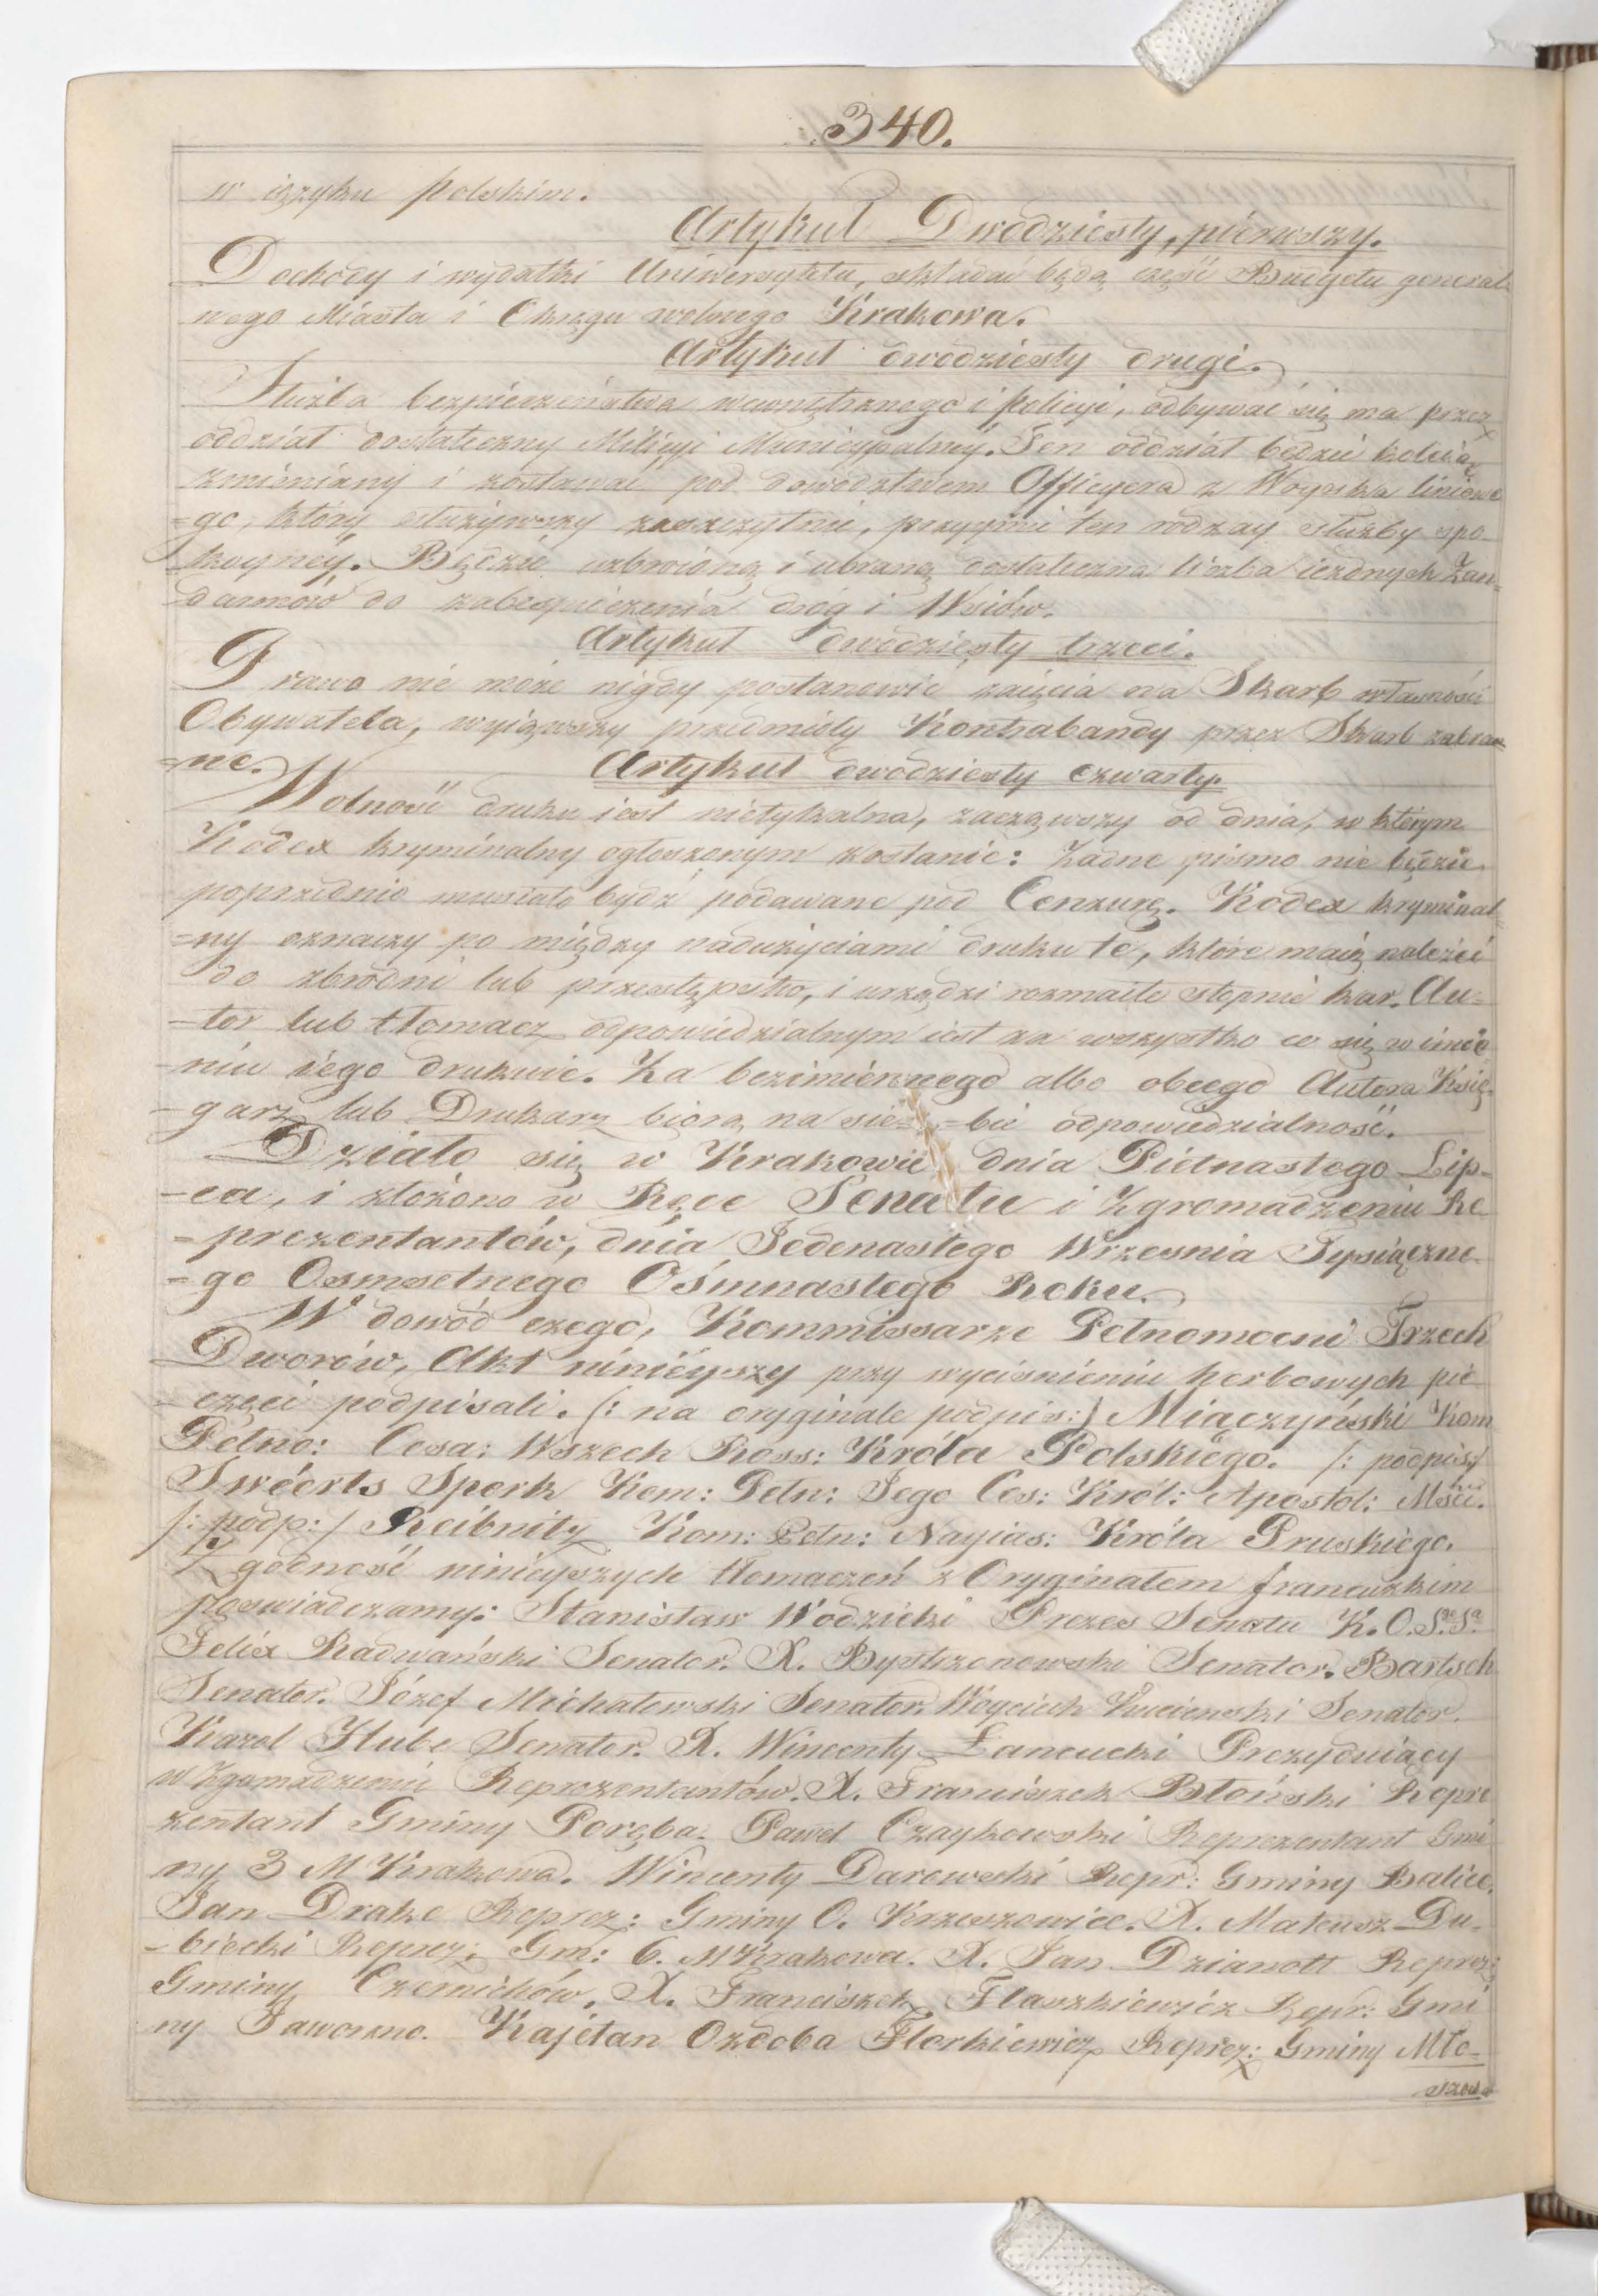 340.
w ięzyku polskim.
Artykuł Dwódziesty, pierwszy.
Dochody i wydatki Uniwersytetu, składać będą część Budgetu general-
nego Miasta i Okręgu wolnego Krakowa.
Artykuł dwódziesty drugi.
Służba bezpieczeństwa wewnętrznego i policyi, odbywać się ma przez
oddział dostateczny Milicyi Municypalney. Ten oddział będzie koleią
zmieniany i zostawać pod dowództwem Officyera z Woyska liniowe
=go, który służywszy zaszczytnie, przyymie ten rodzay służby spo-
koyney. Będzie uzbroiona i ubrana dostateczna liczba iezdnych Żan-
darmów do zabespieczenia dróg i Wsiów.
Artykuł dwódziesty trzeci.
Prawo nie może nigdy postanowić zaięcia na Skarb własności
Obywatela, wyiąwszy przedmioty Kontrabandy przez Skarb zabra-
=ne.
Artykuł dwódziesty czwarty.
Wolność druku iest nietykalna, zacząwszy od dnia, w którym
Kodex kryminalny ogłoszonym zostanie: żadne pismo nie będzie
poprzednio musiało bydź podawane pod Cenzurę. Kodex kryminal-
=ny oznaczy po między nadużyciami druku te, które maią należeć
do zbrodni lub przestępstw, i urządzi rozmaite stopnie kar. Au-
-tor lub tłomacz odpowiedzialnym iest za wszystko co się w imie-
-niu iego drukuie. Za bezimiennego albo obcego Autora Księ-
-garz lub Drukarz biorą na sie=-bie odpowiedzialność.
Działo się w Krakowie dnia Pietnastego Lip-
-ca, i złożono w Ręce Senatu i Zgromadzeniu Re
=prezentantów, dnia Jedenastego Wrzesnia Tysiączne-
=go Osmsetnego Ośmnastego Roku.
W dowód czego, Kommissarze Pełnomocni Trzech
Dworów, Akt ninieyszy przy wyciśnieniu herbowych pie
-częci podpisali. (: na oryginale podpis:) Miączyński Kom
Pełno: Cesa: Wszech Ross: Króla Polskiego. /: podpis:/
Swéerts Sperk Kom: Pełn: Jego Ces: Król: Apostol: Mści.
/: podp:/ Reibnitz Kom: Pełn: Nayias: Króla Pruskiego.
Zgodność ninieyszych tłomaczeń z Oryginałem francuzkim
poswiadczamy: Stanisław Wodzicki Prezes Senatu K. O. S.
Felix Radwański Senator. X. Bystrzonowski Senator. Bartsch
Senator. Józef Michałowski Senator. Woyciech Senator.
Karol Hube Senator. X. Wincenty Łancucki Prezyduiący
w Zgomadzeniu Reprezentantów. X. Franciszek Błoński Repre
zentant Gminy Poręba. Paweł Czaykowski Reprezentant Gmi
ny 3 M Krakowa. Wincenty Darowski Repr: Gminy Balice.
Jan Drake Reprez: Gminy O. Krzeszowice. X. Mateusz Du-
-biecki Reprez: Gm: 6. M Krakowa. X. Jan Dzianott Reprez:
Gminy Czernichów. X. Franciszek Flaszkiewicz Repr: Gmi
ny Jaworzno. Kajetan Ozdoba Florkiewicz Reprez: Gminy Mło-
szowa